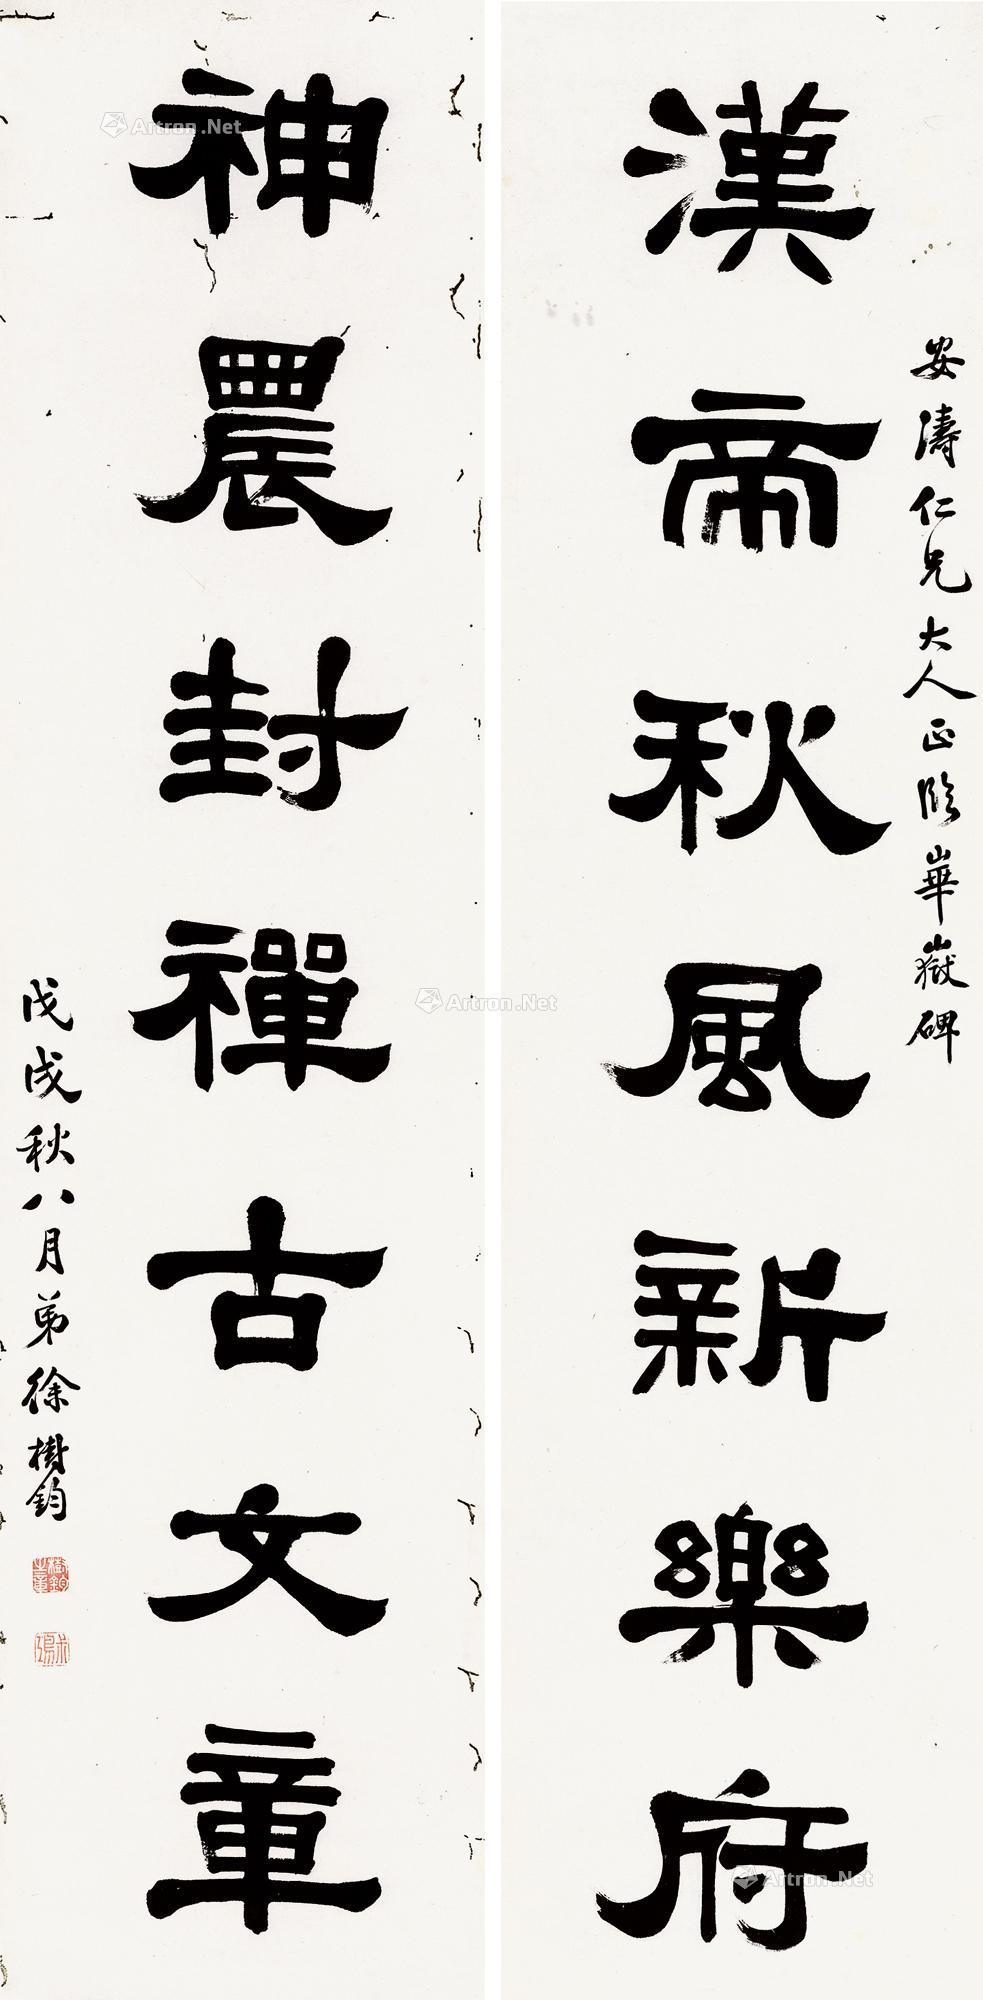 安濤仁兄大人正臨華嶽碑
漢帝秋風新樂府
神農封禪古文章
戊戌秋八月弟徐樹鈞
Artron.Net
Artron.Net
Artron.Net